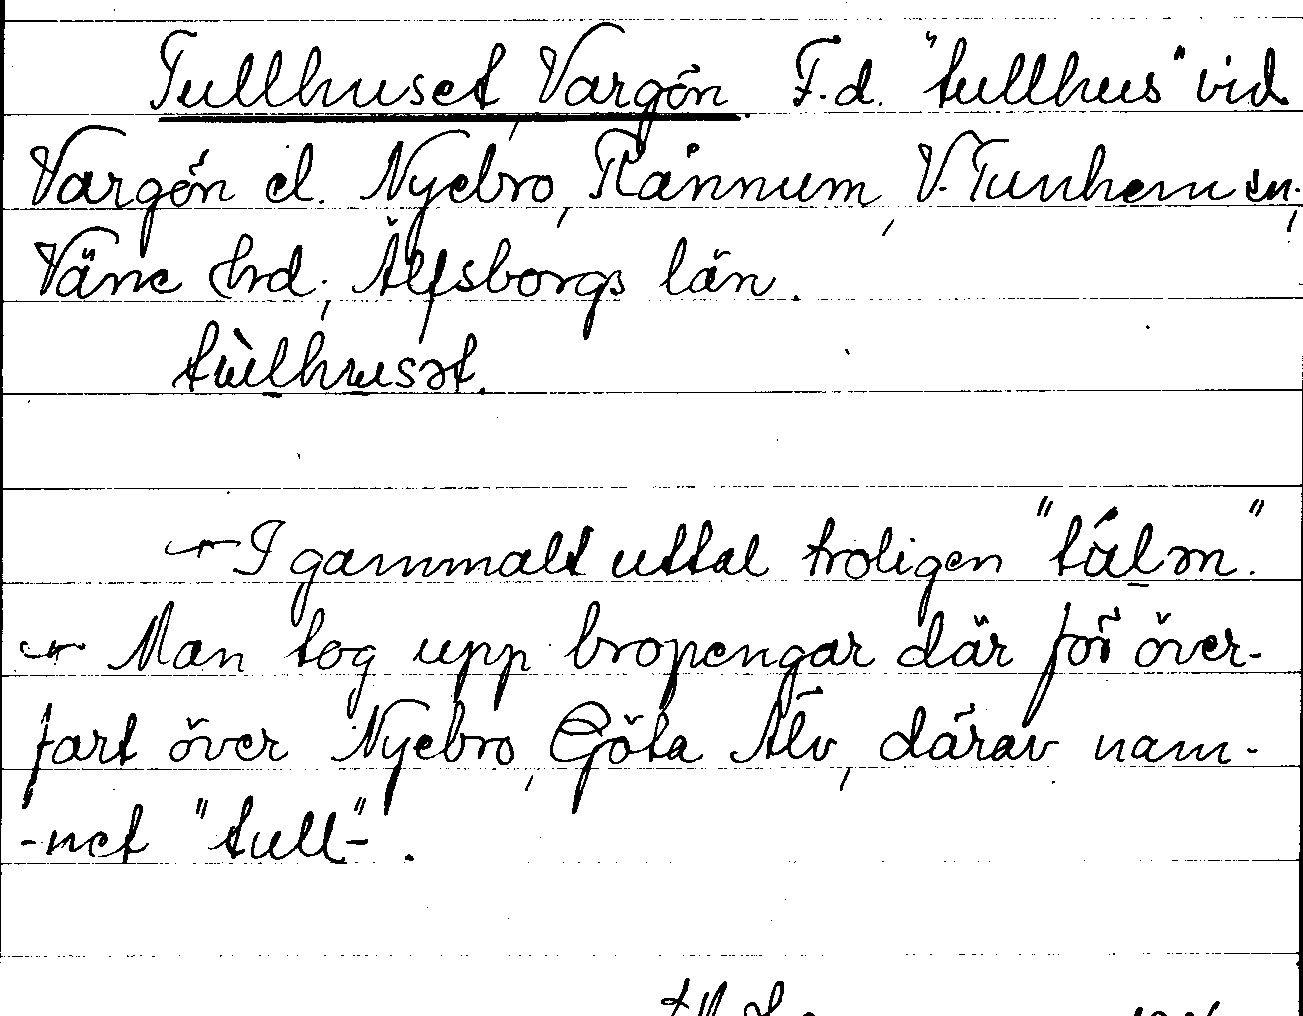 Tullhuset, Vargön. F.d. "tullhus" vid
Vargön el. Nyebro, Rånnum, V. Tunhem sn,
Väne hrd, Älfsborgs län.
I gammalt uttal troligen
Man tog upp bropengar där för över-
fart över Nyebro, Göta Älv, därav nam-
-net "tull-".